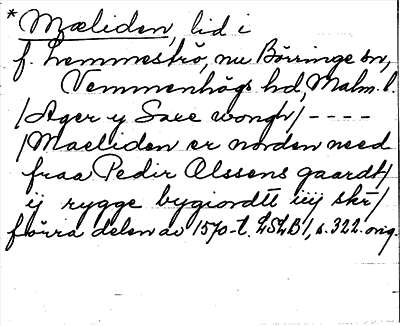 * Mæliden, lid i
f. Lemmeströ, nu Börringe sn,
Vemmenhögs hd, Malm. l.
/Ager y Saee wongh/ ----
/Maeliden er norden need
fraa Pedir Olssens gaardt/
ij rygge bygiordtt iiij skr/
förra delen av 1570-t. LSLB1, s. 322. orig.